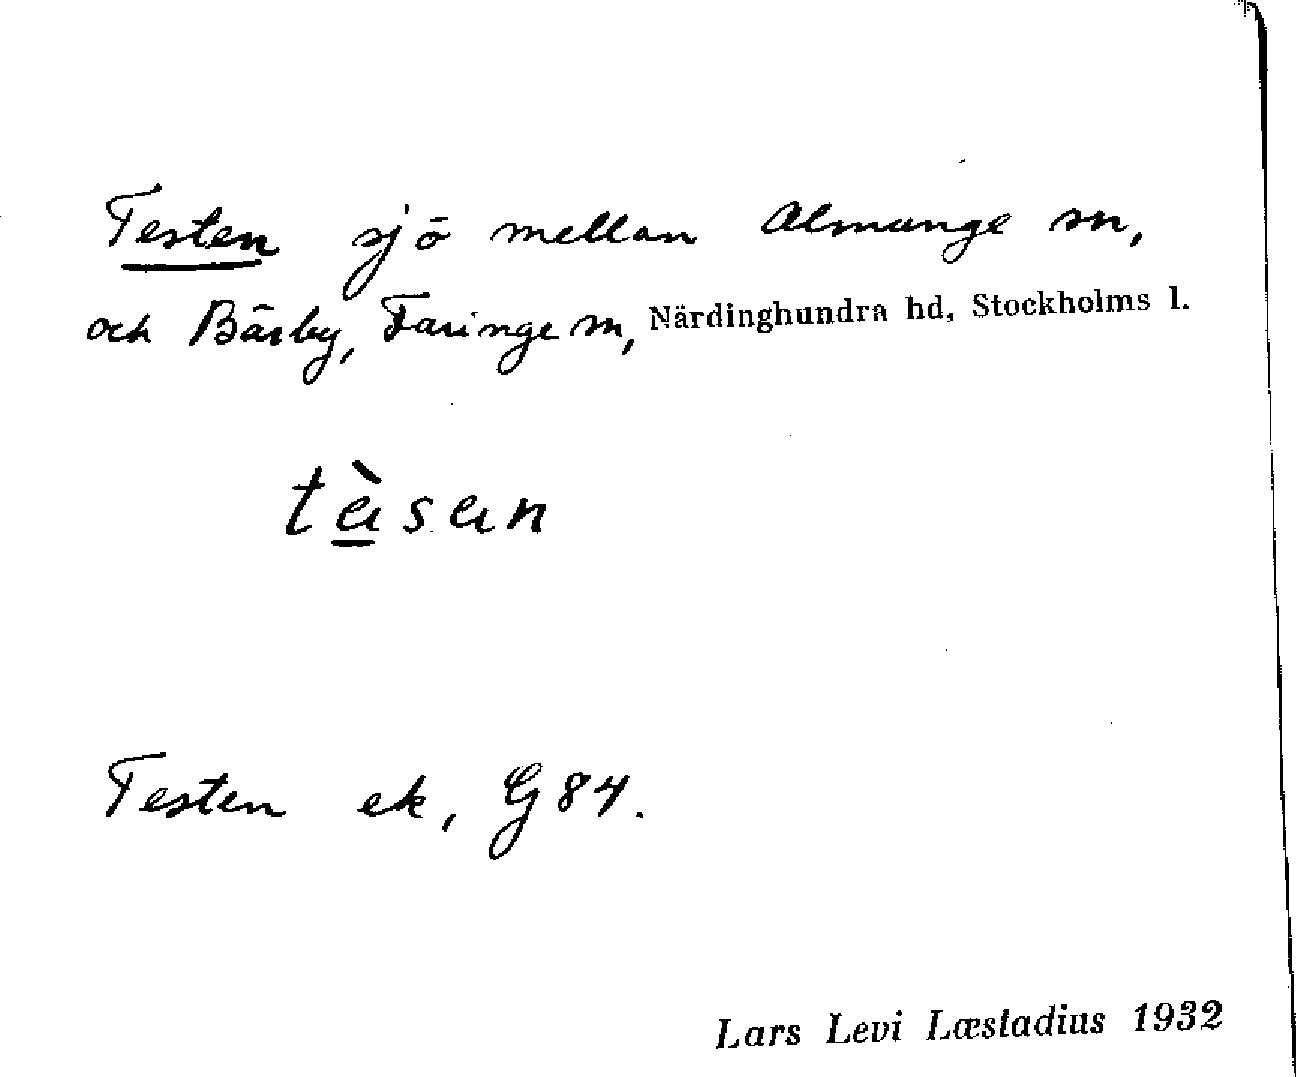 Testen sjö mellan Almunge sn,
och Bärby, Faringe sn, Närdinghundra hd, Stockholms l.
tàsan
Testen ek, G 84.
Lars Levi Læstadius 1932